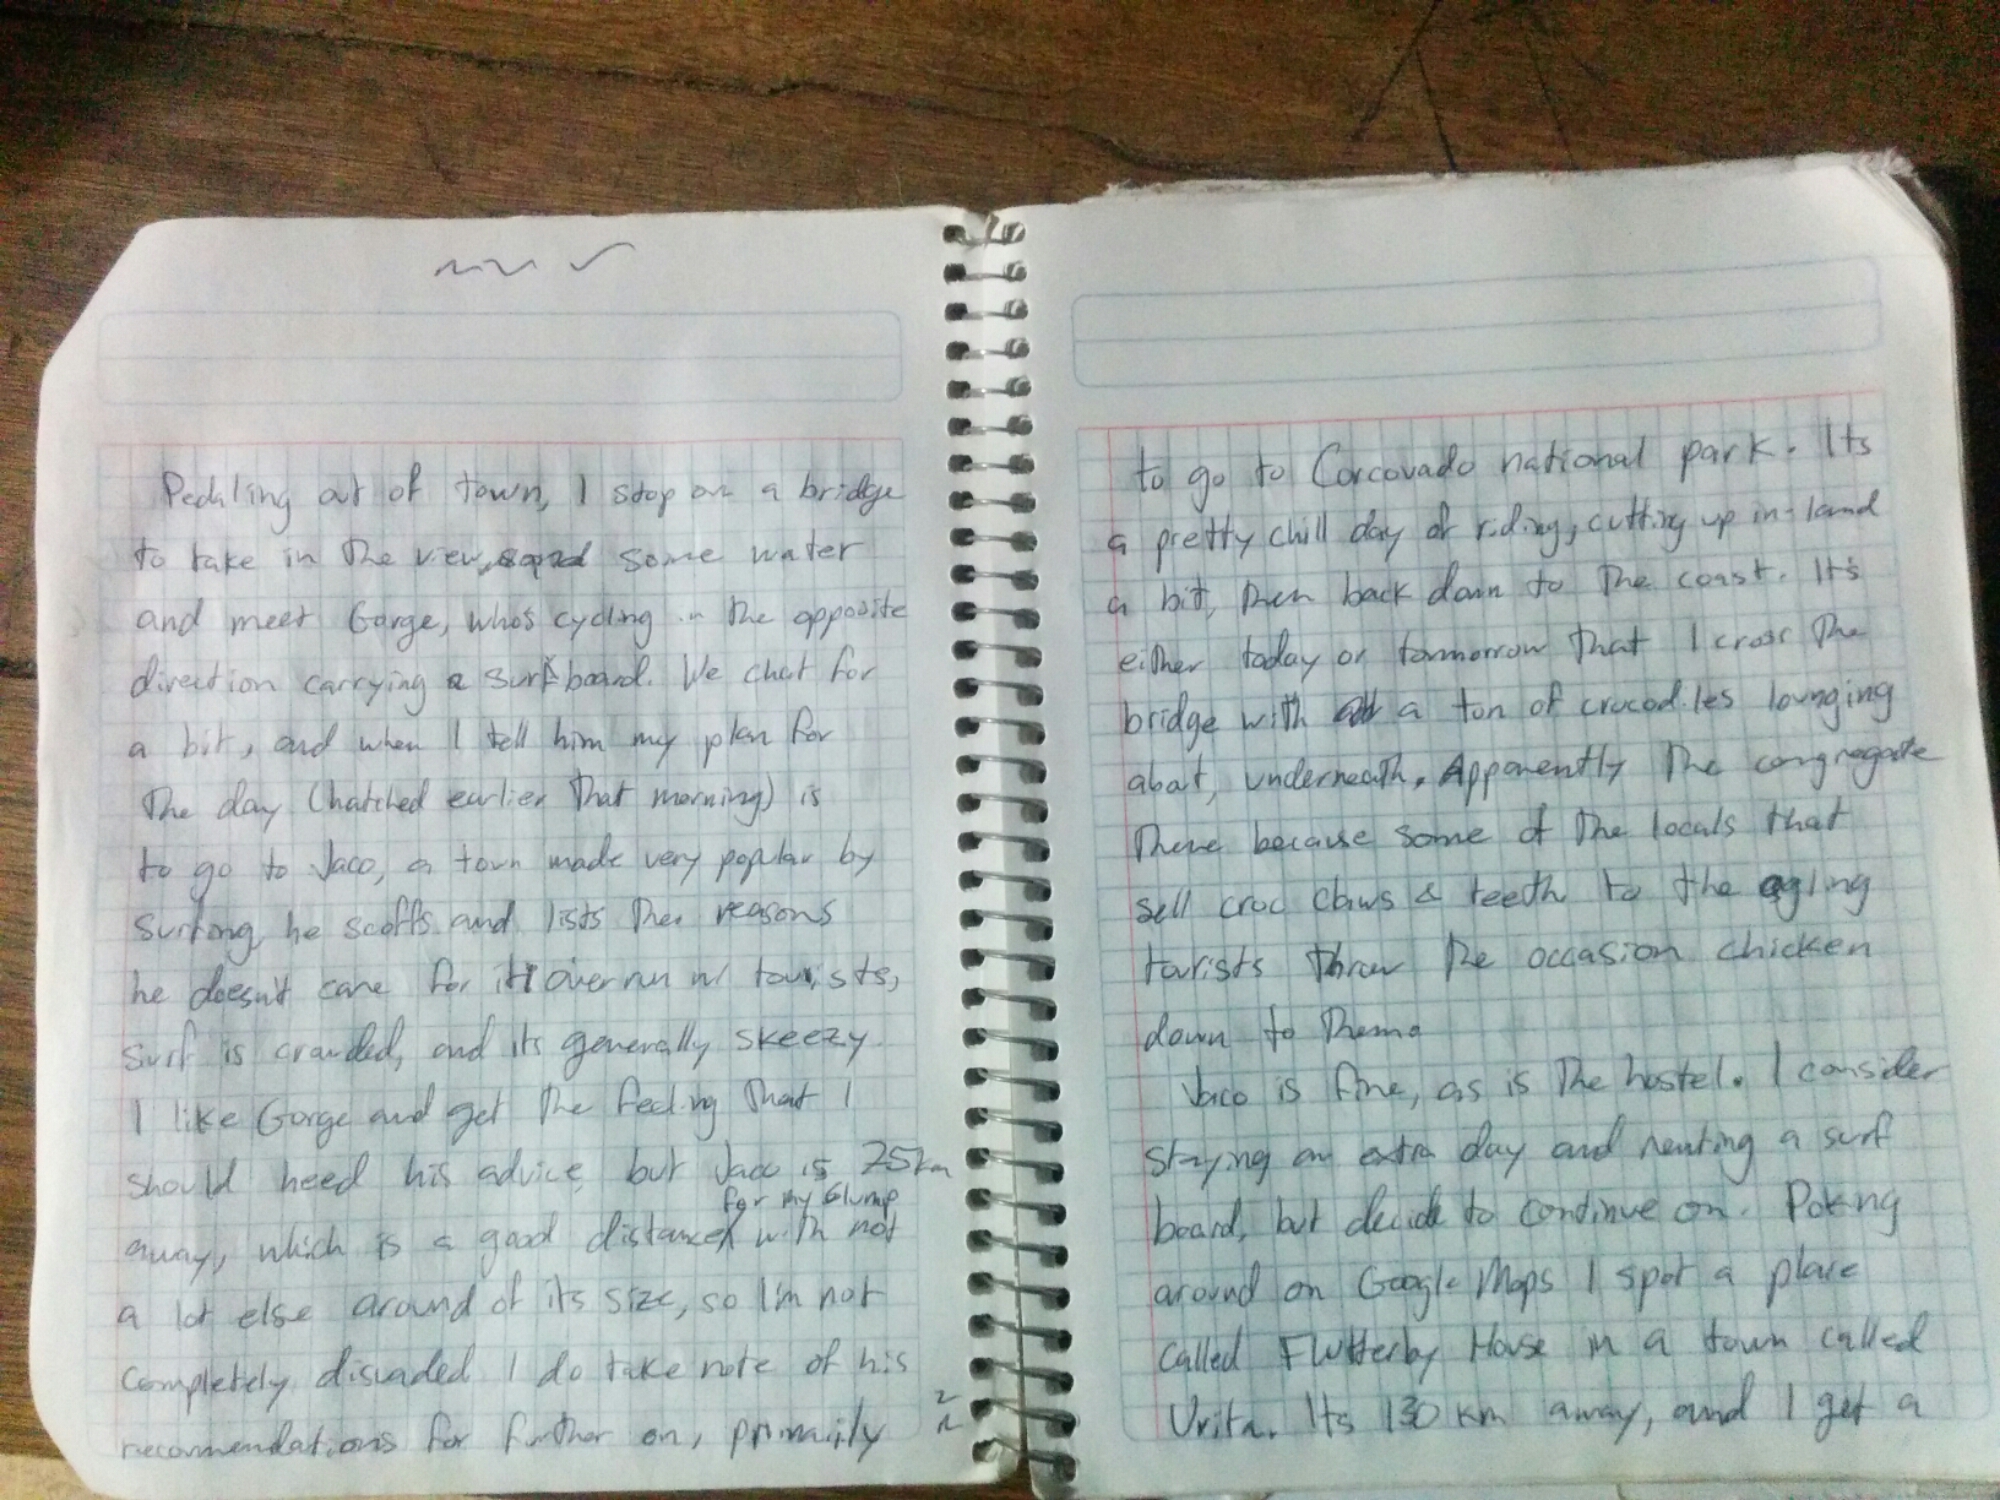 Pedaling out of town, I stop on a bridge
to take in the view, some water
and meet Gorge, who's cycling in the opposite
direction carrying a surfboard. We chat for
a bit, and when I tell him my plan for
the day (hatched earlier that morning) is
to go to Jaco, a town made very popular by
surfing, he scoffs and lists the reasons
he doesn't care for it: overrun w/ tourists,
surf is crowded, and its generally skeezy.
I like Gorge and get the feeling that I
should heed his advice, but Jaco is 75km
for my slump
away, which is a good distance with not
a lot else around of its size, so I'm not
completely disuaded. I do take note of his
recommendations for further on, primarily
to go to Corcovado national park. Its
a pretty chill day of riding, cutting up in-land
a bit, then back down to the coast. It's
either today or tommorrow that I cross the
bridge with a ton of crocodiles lounging
about, underneath. Apparently the congregate
there because some of the locals that
sell croc claws & teeth to the ogling
tourists throw the occasion chicken
down to them.
Jaco is fine, as is the hostel. I consider
staying an extra day and renting a surf
board, but decide to continue on. Poking
around on Google Maps I spot a place
called Flutterby House in a town called
Uvita. Its 130 km away, and I get a